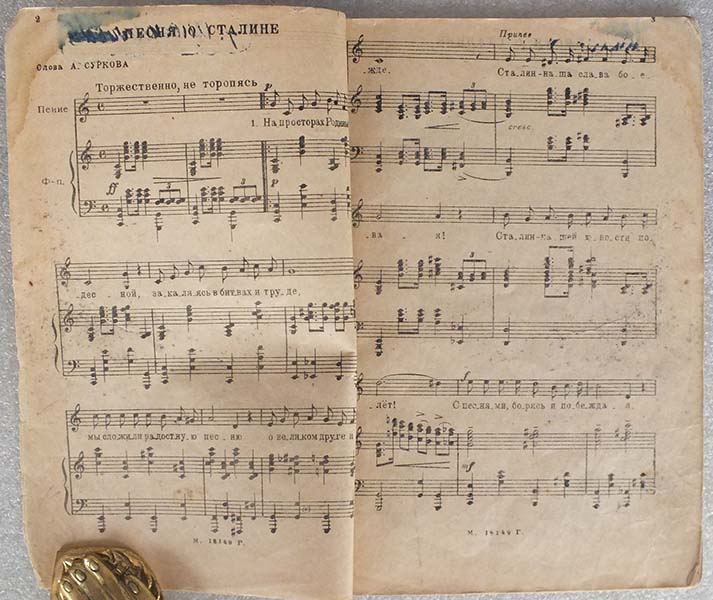 2
ПЕСНЯ О СТАЛИНЕ
Слова А. СУРКОВА
Торжественно, не торопясь
Пение
p
1. На просторах Родины
Ф-п.
ff
3
3
p
дес - ной, за - ка - ля - ясь в бит - вах и тру - де,
мы сло - жи - ли ра - дост - ну - ю пес - ню о ве - ли - ком дру - ге и
М. 18149 Г.
3
Припев
- жде. Ста - лин - на - ша сла - ва бо - е -
3
cresc.
- ва - я! Ста - лин - на - шей ю - но - сти по -
3
- лёт! С пес - ня - ми, бо - рясь и по - беж - да - я,
f
М. 18149 Г.